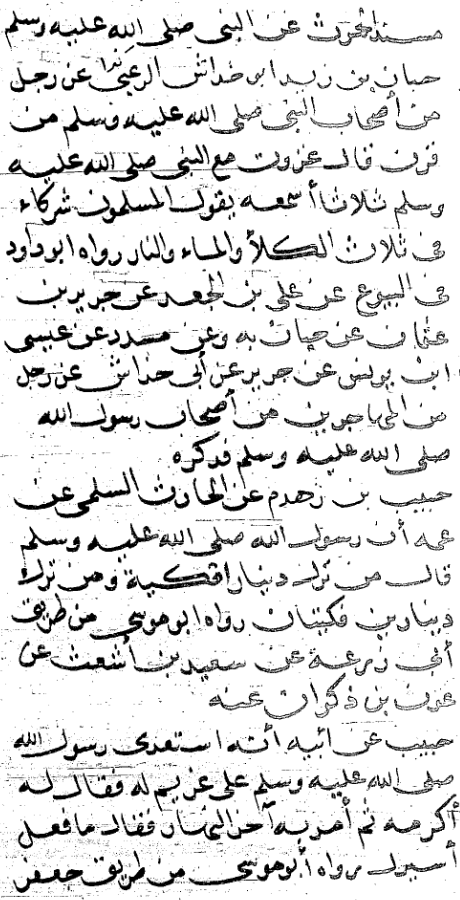 مسند المحرث عن النبى صلى الله عليه وسلم
حبان بن زيد ابو خداش الرعبى عن رجل
من أصحاب النبى صلى الله عليه وسلم من
قرن قال غزوت مع النبى صلى الله عليه
وسلم ثلاثا أسمعه يقول المسلمون شركاء
فى ثلاث الكلأ والماء والنار رواه ابو داود
فى البيوع عن على بن الجعد عن حريز بن
عثمان عن حبان به وعن مسدد عن عيسى
ابن يونس عن حريز عن أبى خداش عن رجل
من المهاجرين من أصحاب رسول الله
صلى الله عليه وسلم فدكره
حبيب بن زهدم عن الحارث السلمى عن
عمه أن رسول الله صلى الله عليه وسلم
قال من ترك دينارا فكية ومن ترك
دينارين فكيتان رواه ابو موسى من طريق
أبى زرعة عن سعيد بن أشعث عن
عون بن ذكوان عنه
حبيب عن ابيه أنه استعدى رسول الله
صلى الله عليه وسلم على غريم له فقال له
أكرمه ثم أمر به آخر النهار فقال ما فعل
أسيرك رواه أبو موسى من طريق جعفر